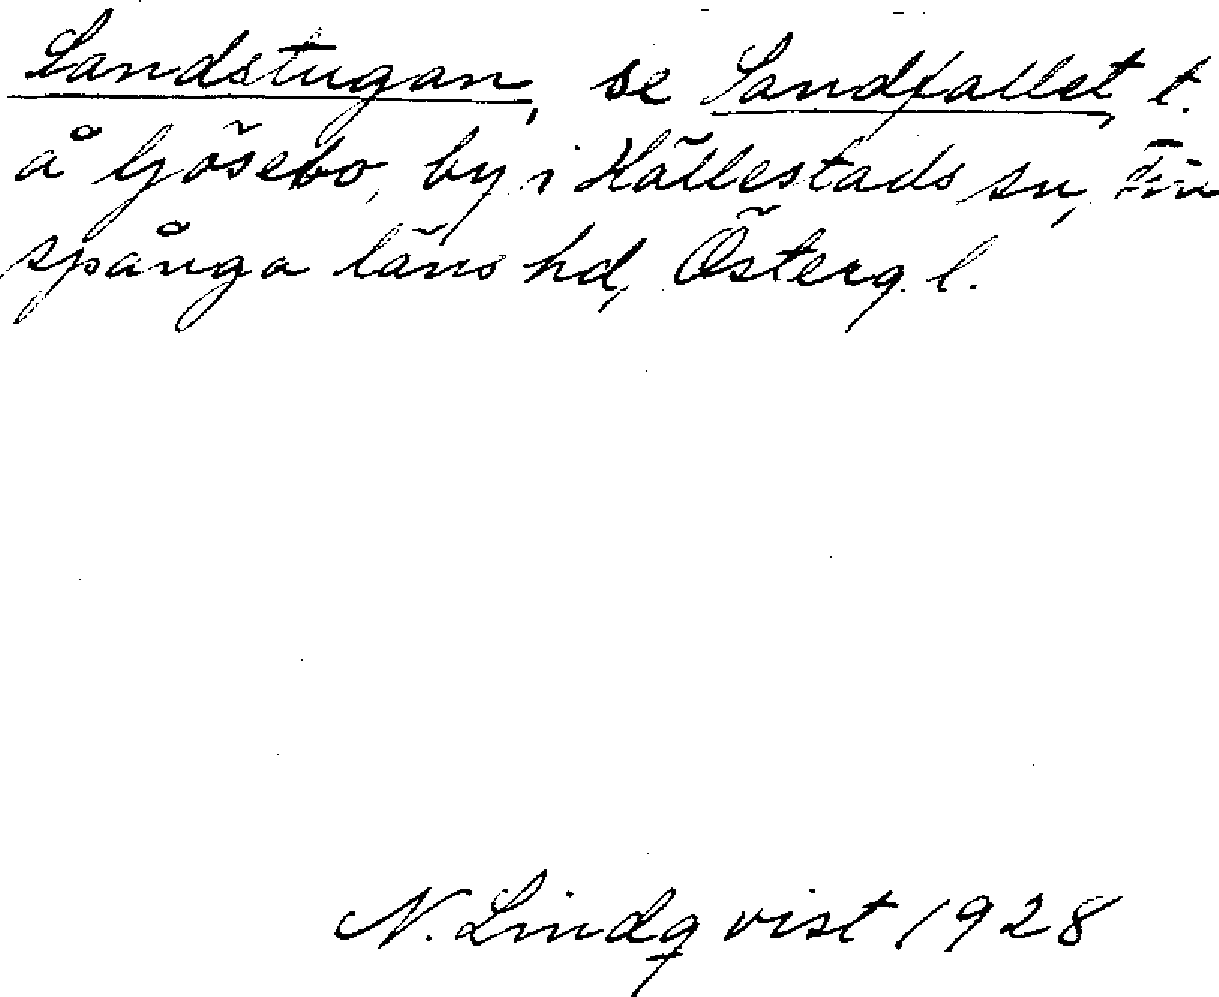 Sandstugan, se Sandfallet, t.
å Gösebo, by i Hällestads sn, Fin
spånga läns hd, Österg. l.
N. Lindqvist 1928